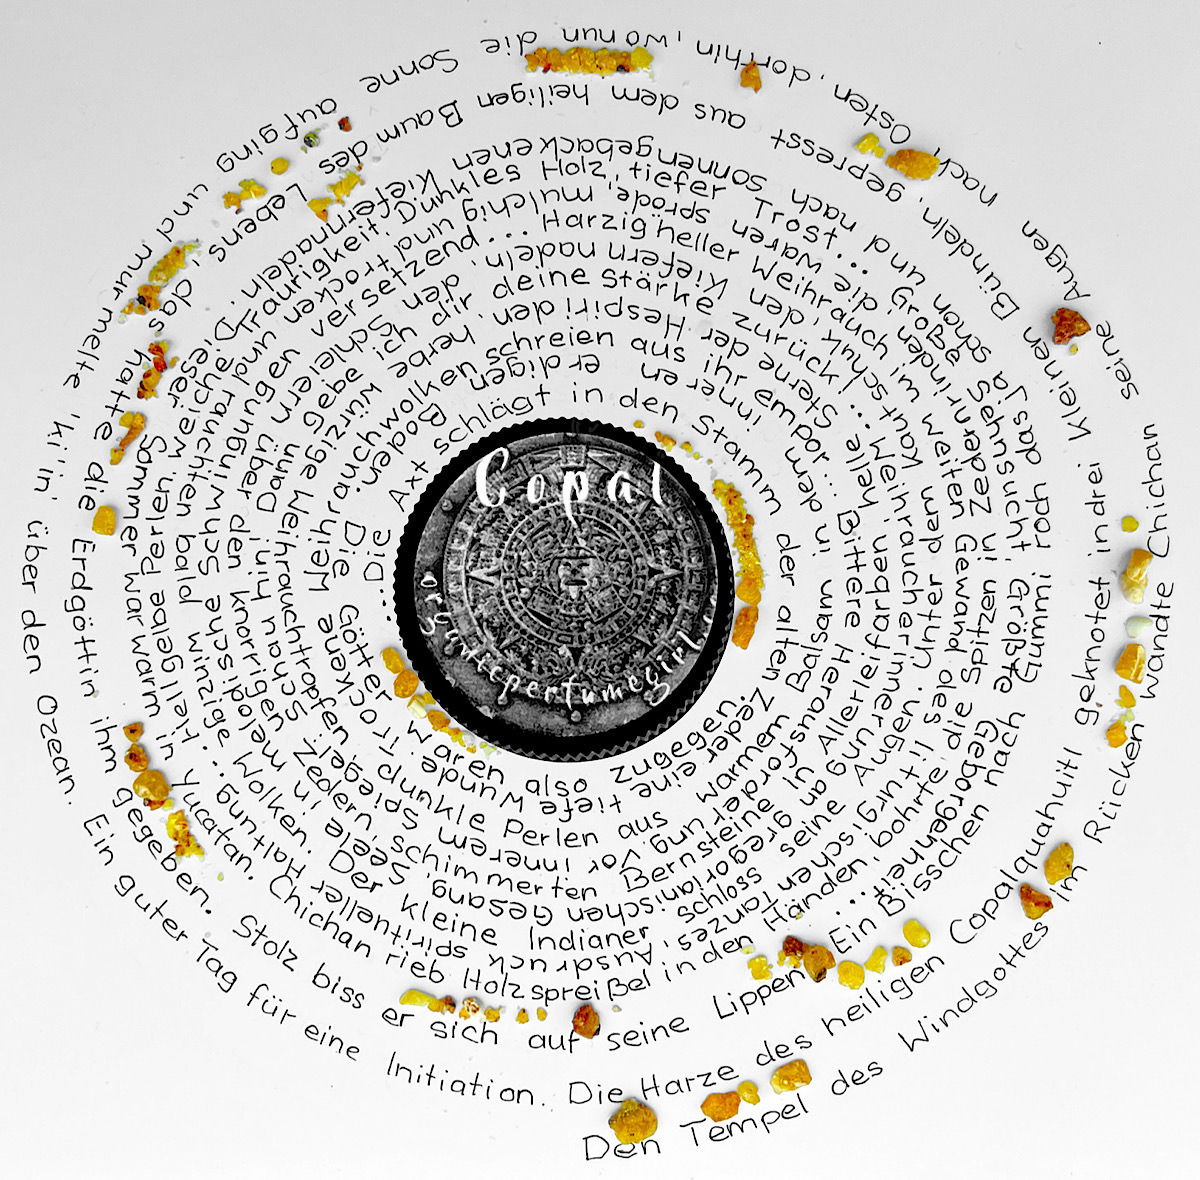 Copal
organicperfumegirl
Den Tempel des Windgottes im Rücken wandte Chichan seine Augen nach Osten, dorthin, wo nun die Sonne aufging und murmelte 'k'i'in' über den Ozean. Ein guter Tag für eine Initiation. Die Harze des heiligen Copalquahuitl geknotet in drei kleinen Bündeln, gepresst aus dem heiligen Baum des Lebens, das hatte die Erdgöttin ihm gegeben. Stolz biss er sich auf seine Lippen. Ein Bisschen nach Gummi roch das ja schon und nach sonnengebackenen Kiefernnadeln. Dieser Sommer war warm in Yucatan. Chichan rieb Holzspreißel in den Händen, bohrte die Spitzen in Zedernrinden, die waren spröde, mulchig und trocken und rauchten bald winzige Wolken. Der kleine Indianer schloss seine Augen. Unter dem Kautschuk, den Kiefernnadeln, den Schleiern über den knorrigen Zedern, schimmerten Bernsteine in Allerleifarben helle Sterne der Hespiriden, herbe würzige Weihrauchtropfen, dunkle Perlen aus warmem Balsam in dem inneren erdigen Boden. Die Götter waren also zugegen.
...Die Axt schlägt in den Stamm der alten Zeder eine tiefe Wunde. Trockene Weihrauchwolken schreien aus ihr empor... Bittere Herausforderung vor innerem Spiegel. Schau hin! Dann gebe ich dir deine Stärke zurück!... Weihräucherinnerung an gregorianischen Gesang, Seele in melodische Schwingungen versetzend... Harzig heller Weihrauch im weiten Gewand des liturgischen Tanzes, Ausdruck spiritueller Haltung... hellgelbe Perlen, weiche Traurigkeit. Dunkles Holz, tiefer Trost... Große Sehnsucht, Größte Geborgenheit...